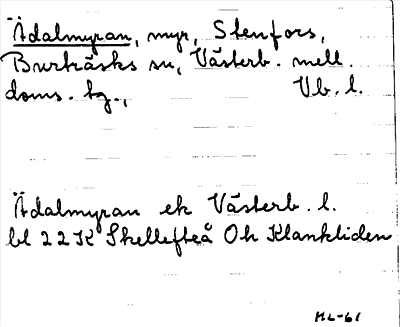 Ädalmyran, myr, Stenfors,
Burträsks sn, Västerb. mell.
doms. tg., Vb. l.
Ädalmyran ek Västerb. l.
bl 22K Skellefteå Oh Klankliden
ML-61